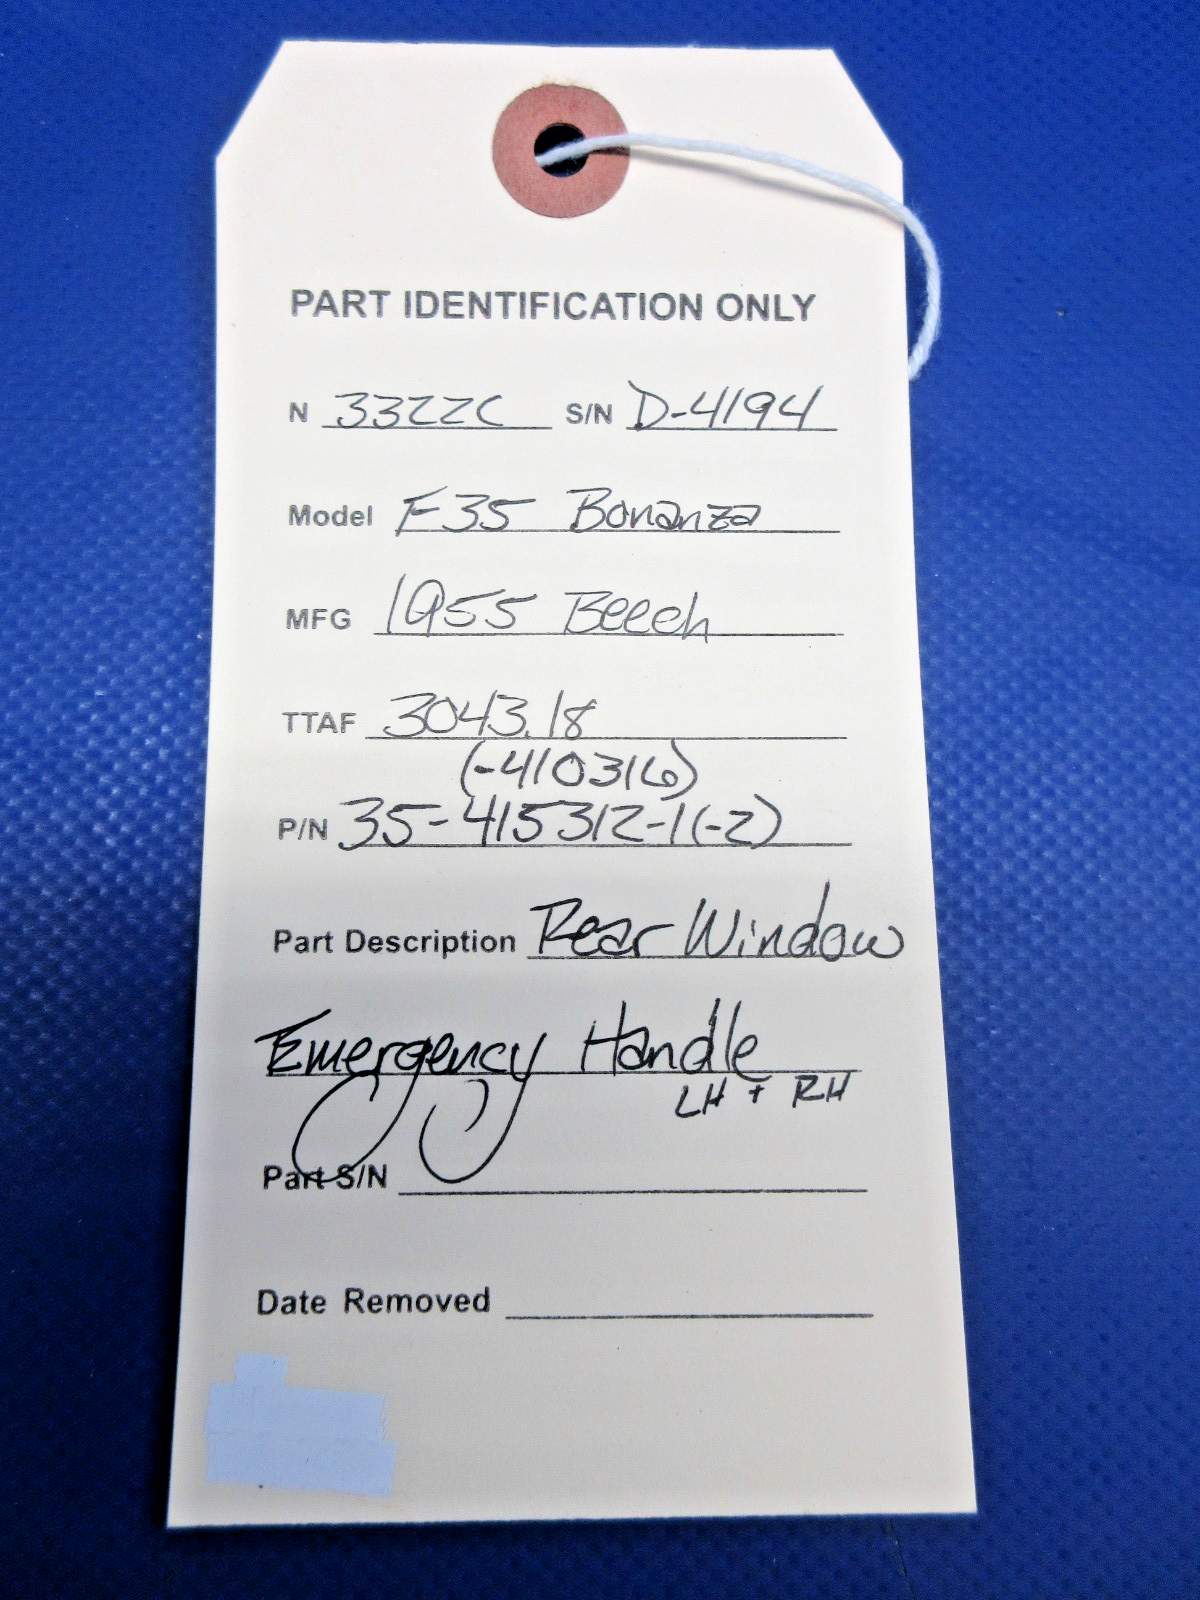 PART IDENTIFICATION ONLY
N 3322C S/N D-4194
Model F35 Bonanza
MFG 1955 Beech
TTAF 3043.18
(-410316)
P/N 35-415312-1(-2)
Part Description Rear Window
Emergency Handle
LH + RH
Part S/N
Date Removed